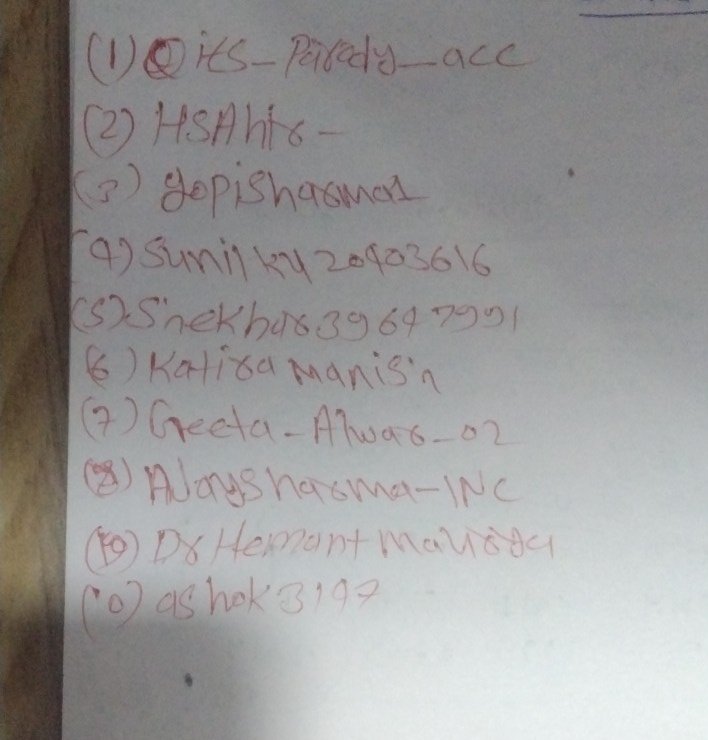 (1) @its-Parody_acc
(2) HSAhir-
(3) gopisharma1
(4) Sunilky20403616
(5) Shekhar39647991
(6) Katira Manish
(7) Geeta-Alwar-02
(8) Ajaysharma-INC
(9) Dr Hemant
(10) ashok3197